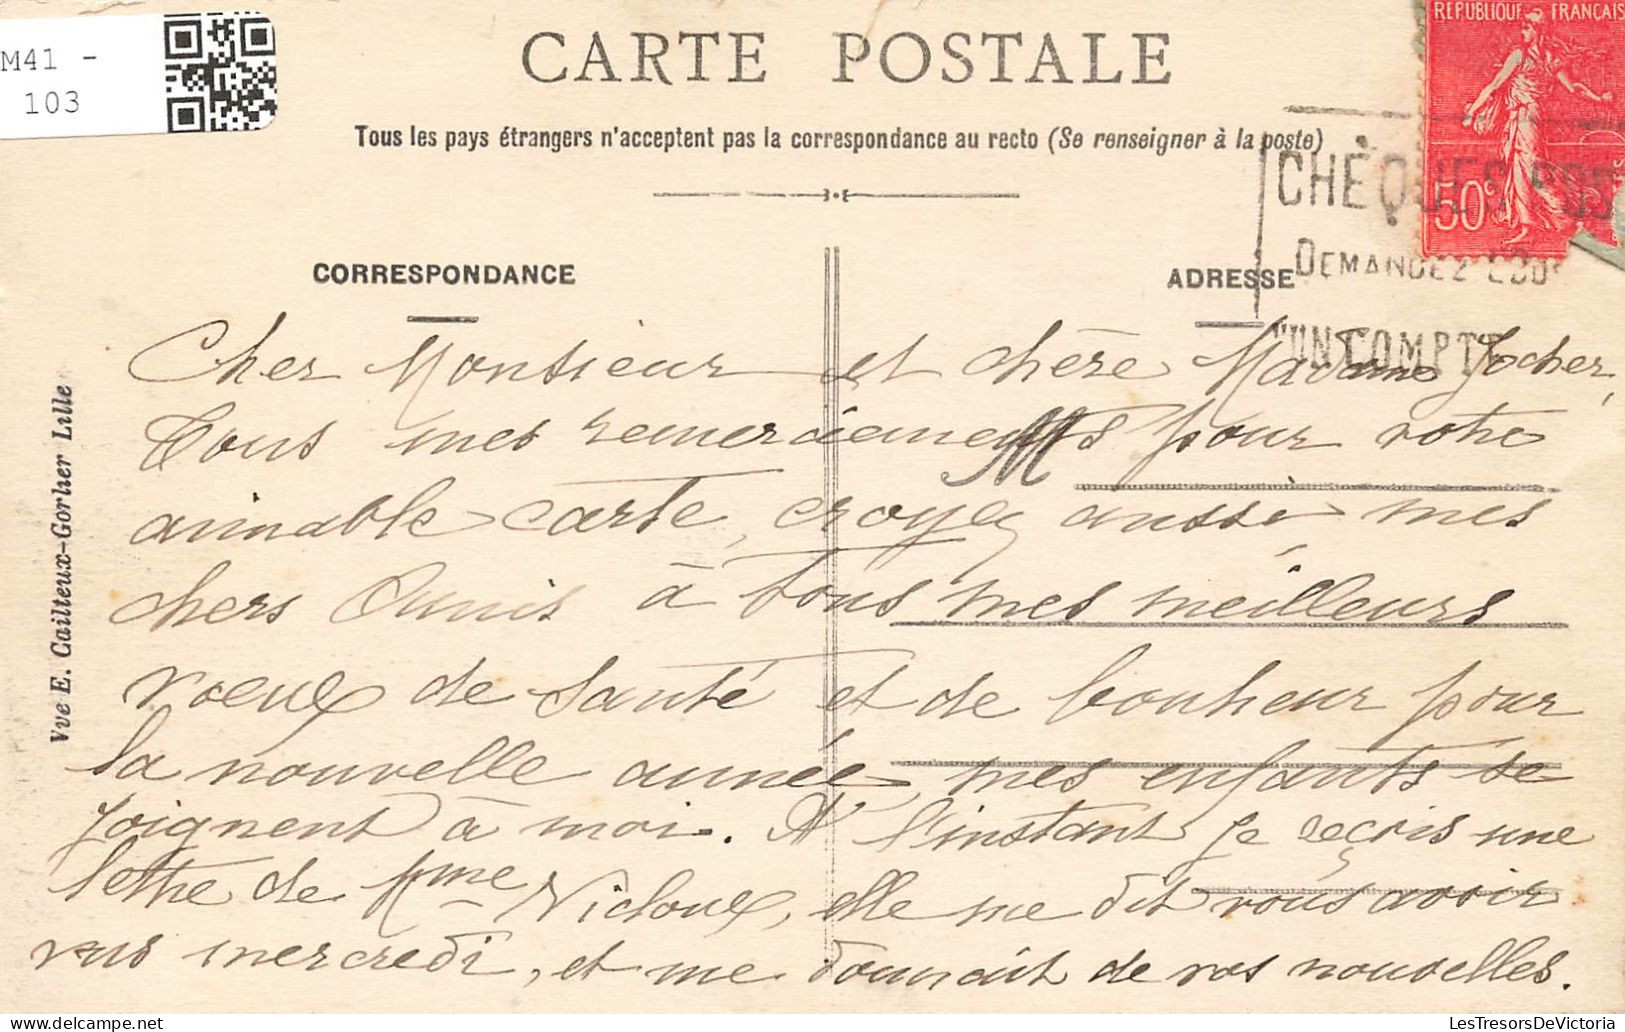 M41 -
103
CARTE POSTALE
REPUBLIQUE FRANÇAIS
50c
Tous les pays étrangers n'acceptent pas la correspondance au recto (Se renseigner à la poste)
CHÈQUES POS
DEMANDEZ
UN COMPTE
CORRESPONDANCE
ADRESSE
Vve E. Cailteux-Gorlier Lille
Cher Monsieur et chère Madame Jocher,
Tous mes remerciements pour votre
aimable carte, croyez aussi mes
chers Amis à tous mes meilleurs
vœux de santé et de bonheur pour
la nouvelle année, mes enfants se
joignent à moi. A l'instant je reçois une
lettre de Mme Nicloux, elle me dit vous avoir
vus mercredi, et me donnait de vos nouvelles.
M
LesTresorsDeVictoria